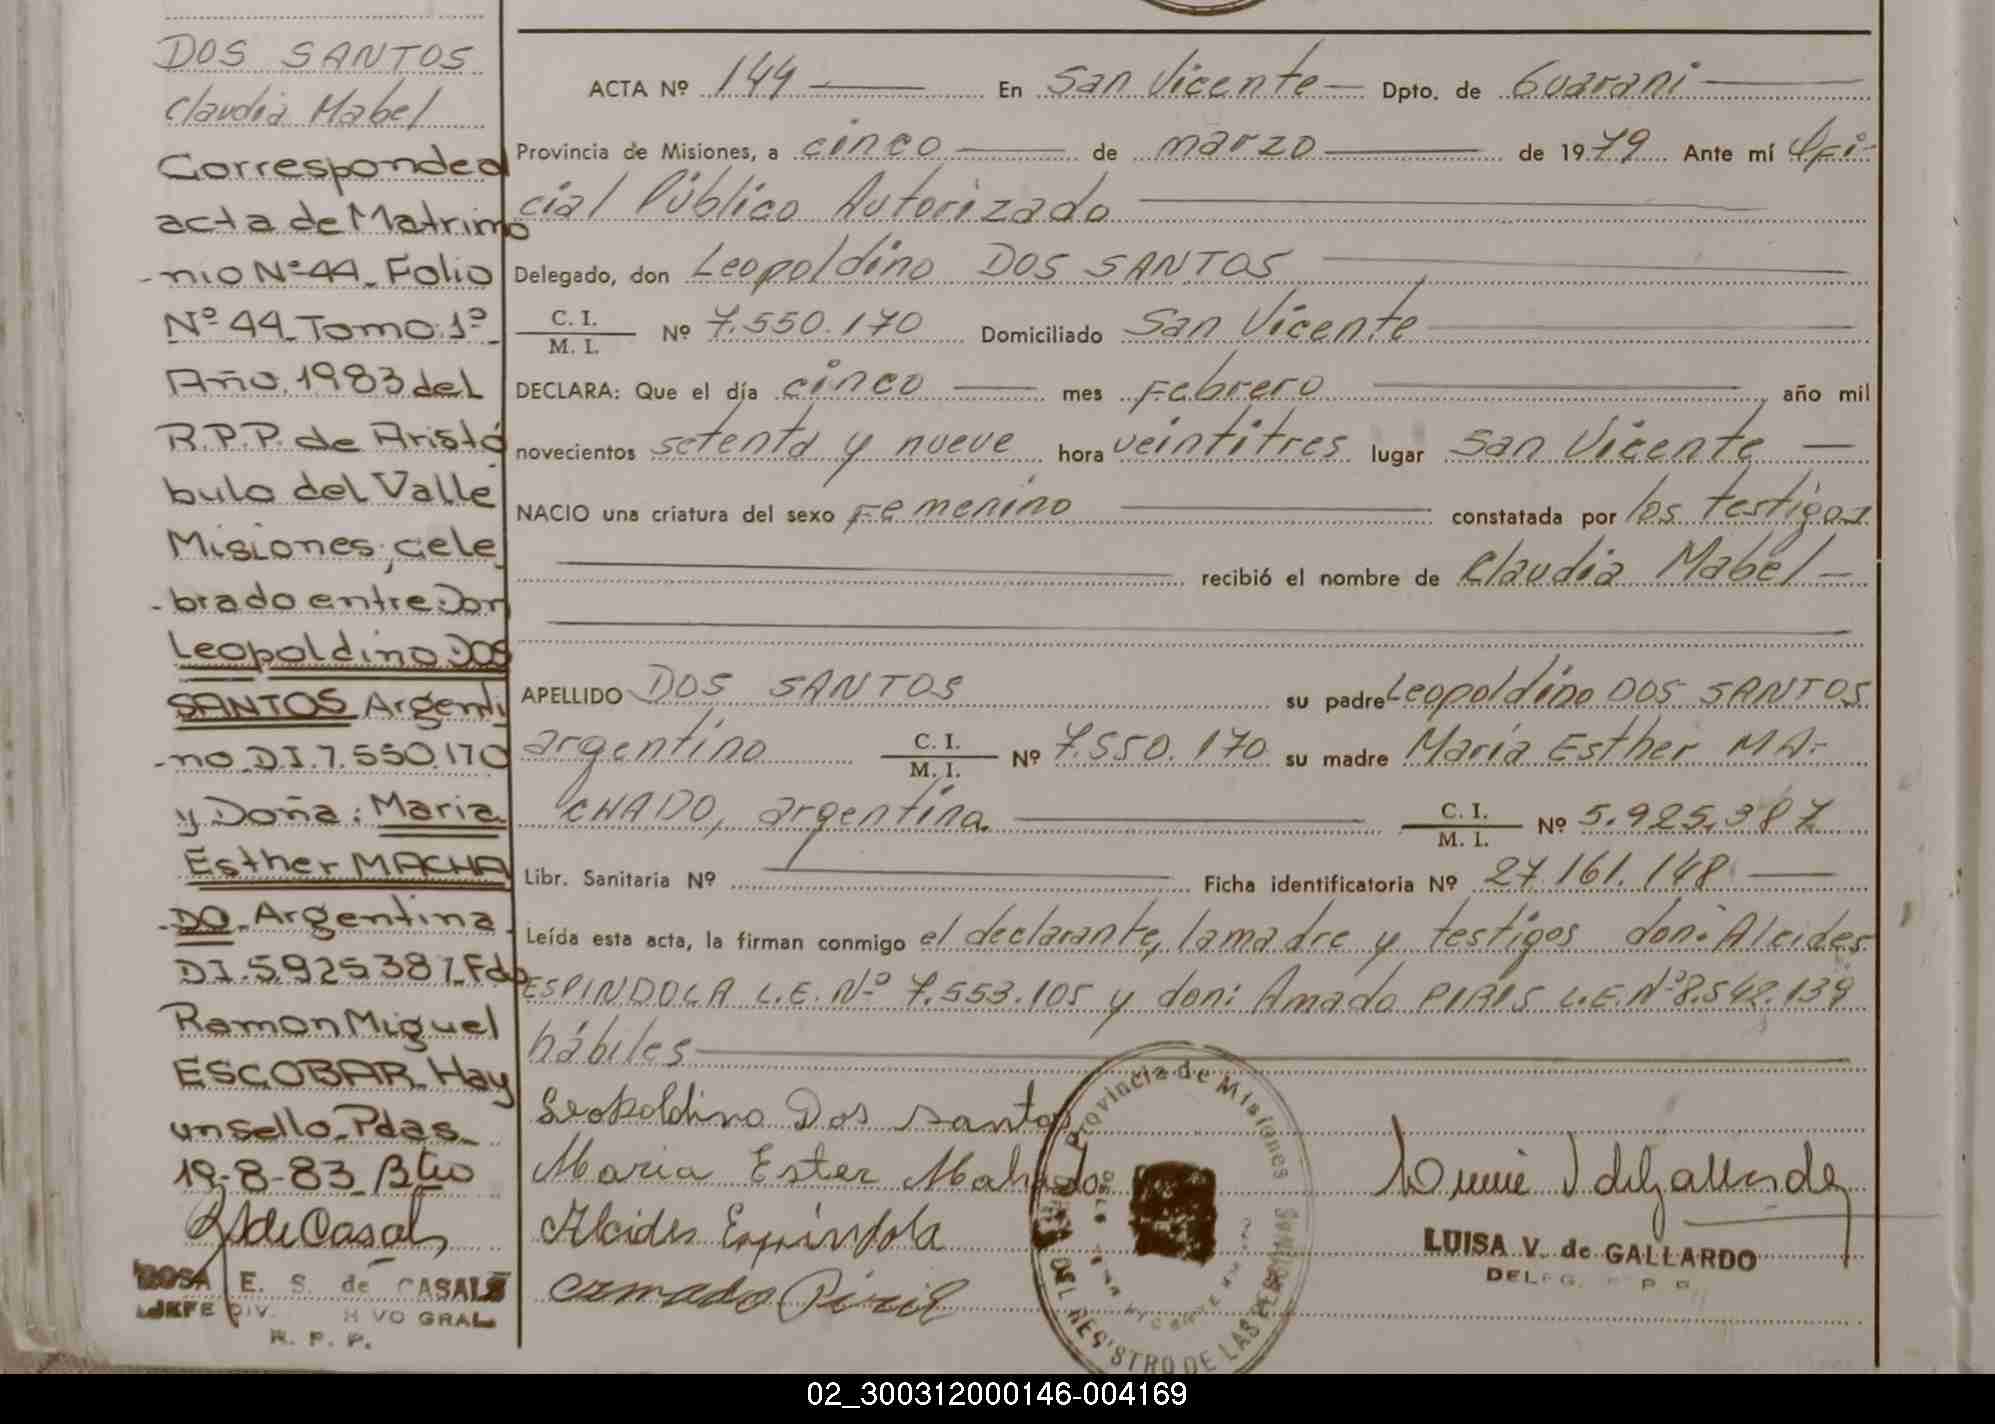 DOS SANTOS
Claudia Mabel
Corresponde al
acta de Matrimo
-nio Nº 44_ Folio
Nº 44_ Tomo: 1º_
Año. 1983 del
R.P.P. de Aristó
bulo del Valle
Misiones; cele
-brado entre: Don
Leopoldino DOS
SANTOS Argenti
-no_D.I. 7.550.170
y Doña: Maria
Esther MACHA
-DO_Argentina
D.I. 5.925.387_Fdo
Ramon Miguel
ESCOBAR_Hay
un sello_Pdas_
19-8-83_
ROSA E. S. de CASALS
JEFE DIV. VO GRAL
R. P. P.
ACTA Nº 144 En San Vicente Dpto. de Guarani
Provincia de Misiones, a cinco de marzo de 1979 Ante mí Ofi-
cial Público Autorizado
Delegado, don Leopoldino DOS SANTOS
C. I.
M. I. Nº 7.550.170 Domiciliado San Vicente
DECLARA: Que el día cinco mes Febrero año mil
novecientos setenta y nueve hora veintitres lugar San Vicente
NACIO una criatura del sexo Femenino constatada por los testigos
recibió el nombre de Claudia Mabel
APELLIDO DOS SANTOS su padre Leopoldino DOS SANTOS
argentino C. I.
M. I. Nº 7.550.170 su madre María Esther MA-
CHADO, argentina. C. I.
M. I. Nº 5.925.387
Libr. Sanitaria Nº Ficha identificatoria Nº 27.161.148
Leída esta acta, la firman conmigo el declarante, la madre y testigos don: Alcides
ESPINDOLA L.E. Nº 7.553.105 y don: Amado PIRIS L.E. Nº 8.542.139
hábiles
Leopoldino Dos santos
Maria Ester Mahado
Alcides Espíndola
Amado Piris
Provincia de Misiones
DEL REGISTRO DE LAS PERSONAS
LUISA V. de GALLARDO
DELEG. R P P
02_300312000146-004169